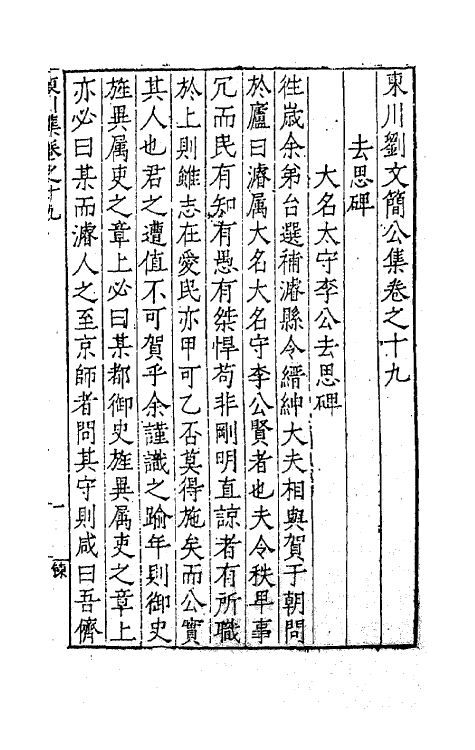 東川劉文簡公集卷之十九
去思碑
大名太守李公去思碑
徃歲余弟台選補濬縣令縉紳大夫相與賀于朝問
於廬曰濬属大名大名守李公賢者也夫令秩卑事
冗而民有知有愚有桀悍苟非剛明直諒者有所職
於上則雖志在愛民亦甲可乙否莫得施矣而公實
其人也君之遭值不可賀乎余謹識之踰年則御史
旌異属吏之章上必曰某都御史旌異属吏之章上
亦必曰某而濬人之至京師者問其守則咸曰吾儕
東川集卷之十九
一